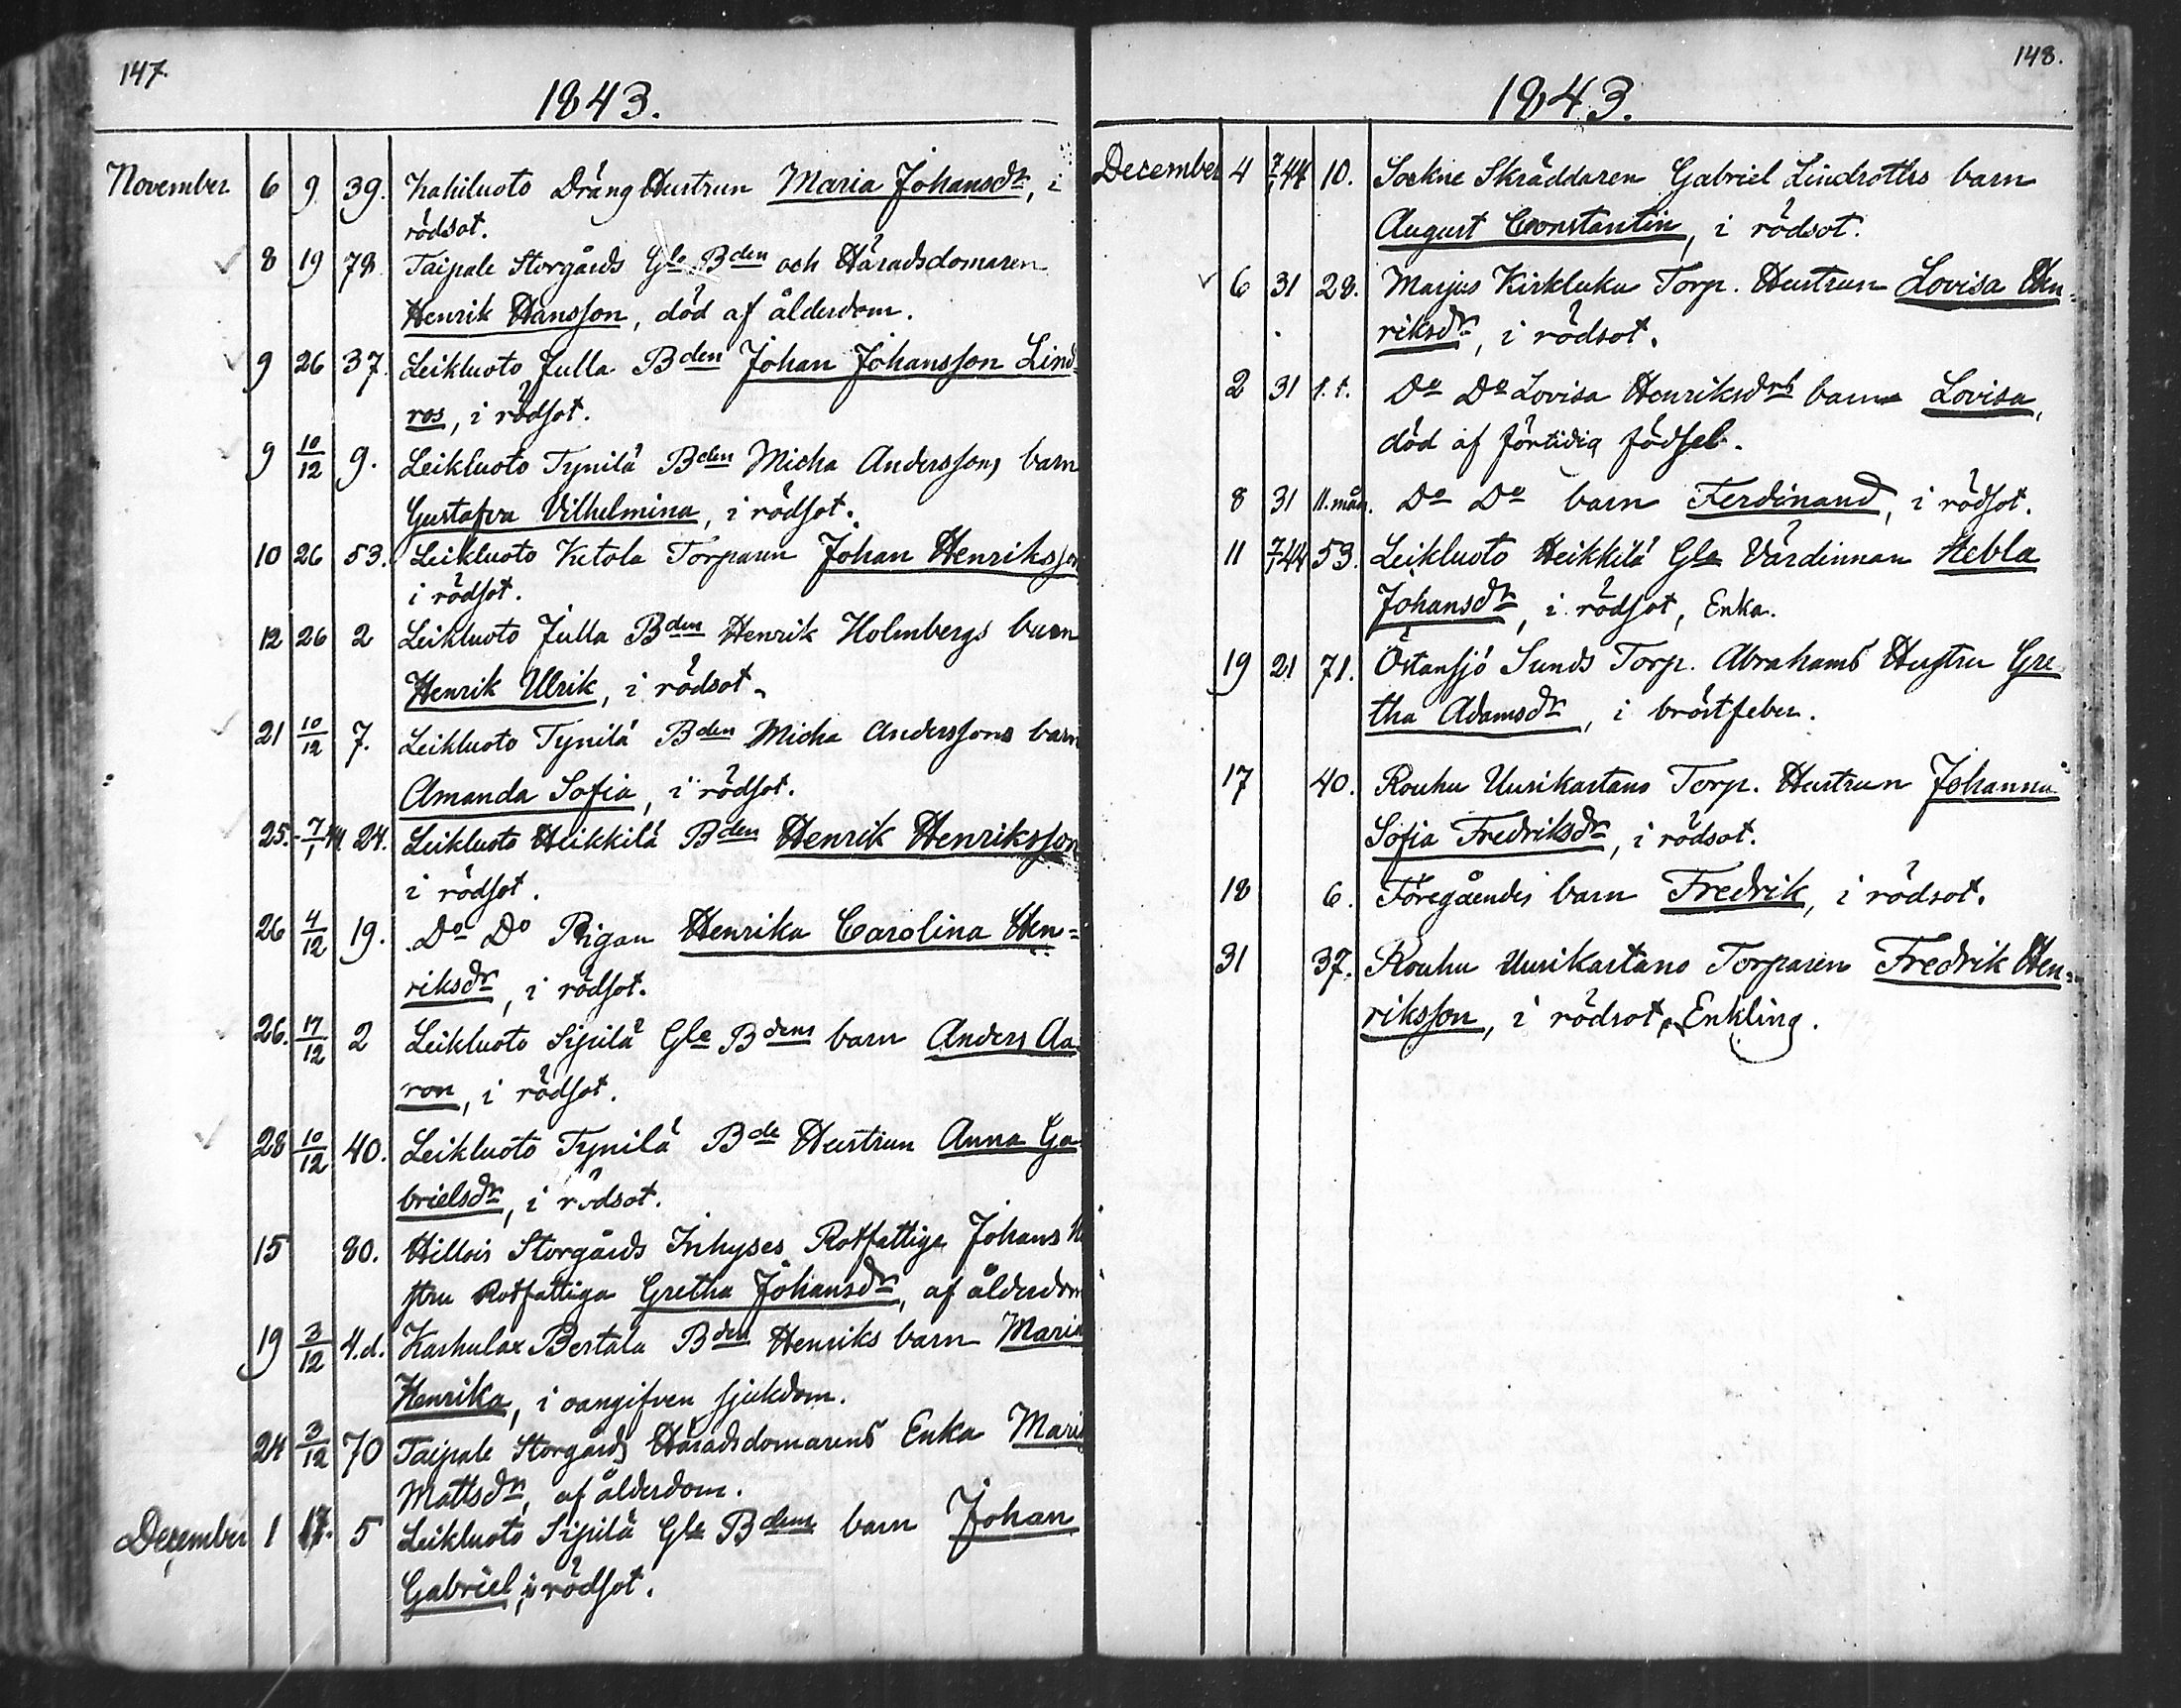 147.
1843.
November 6 9 39. Kahiluoto Dräng Hustrun Maria Johansdr, i
rödsot.
8 19 78 Taipale Storgårds Gle Bden och Häradsdomaren
Henrik Hansson, död af ålderdom.
9 26 37. Leikluoto Julla Bden Johan Johansson Lind
ros, i rödsot.
9 10/12 9. Leikluoto Tynilä Bden Micha Anderssons barn
Gustafva Vilhelmina, i rödsot.
10 26 53. Leikluoto Ketola Torparen Johan Henriksson
i rödsot.
12 26 2 Leikluoto Julla Bden Henrik Holmbergs barn
Henrik Ulrik, i rödsot.
21 10/12 7. Leikluoto Tynilä Bden Micha Anderssons barn
Amanda Sofia, i rödsot.
25. 7/1 44 24. Leikluoto Heikkilä Bden Henrik Henriksson
i rödsot.
26 4/12 19. Do Do Pigan Henrika Carolina Hen=
riksdr, i rödsot.
26. 17/12 2 Leikluoto Sipilä Gle Bdens barn Anders Aa
ron, i rödsot.
28 10/12 40. Leikluoto Tynilä Bde Hustrun Anna Ga
brielsdr, i rödsot.
15 80. Hillois Storgårds Inhyses Rotfattige Johans Hu
stru Rotfattiga Gretha Johansdr, af ålderdom
19 3/12 4.d. Karhulax Bertala Bden Henriks barn Maria
Henrika, i oangifven sjukdom.
24 3/12 70 Taipale Storgårds Häradsdomarens Enka Maria
Mattsdr, af ålderdom.
December 1 17. 5 Leikluoto Sipilä Gle Bdens barn Johan
Gabriel, i rödsot.
148.
1843.
December 4 7/1 44 10. Sockne Skräddaren Gabriel Lindroths barn
August Constantin, i rödsot.
6 31 28. Marjus Kirkluku Torp. Hustrun Lovisa Hen=
riksdr, i rödsot.
2 31 1.t. Do Do Lovisa Henriksdrs barn Lovisa,
död af förtidig födsel.
8 31 11.mån. Do Do barn Ferdinand, i rödsot.
11 7/1 44 53. Leikluoto Heikkilä Gla Värdinnan Hebla
Johansdr, i rödsot, Enka.
19 21 71. Östansjö Sunds Torp. Abrahams Hustru Gre
tha Adamsdr, i bröstfeber.
17 40. Rouhu Uusikartano Torp. Hustrun Johanna
Sofia Fredriksdr, i rödsot.
18 6. Föregåendes barn Fredrik, i rödsot.
31 37. Rouhu Uusikartano Torparen Fredrik Hen=
riksson, i rödsot, Enkling.